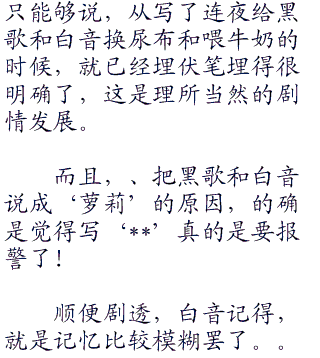 只能够说，从写了连夜给黑
歌和白音换尿布和喂牛奶的
时候，就已经埋伏笔埋得很
明确了，这是理所当然的剧
情发展。
而且，、把黑歌和白音
说成‘萝莉’的原因，的确
是觉得写‘**’真的是要报
警了！
顺便剧透，白音记得，
就是记忆比较模糊罢了。。